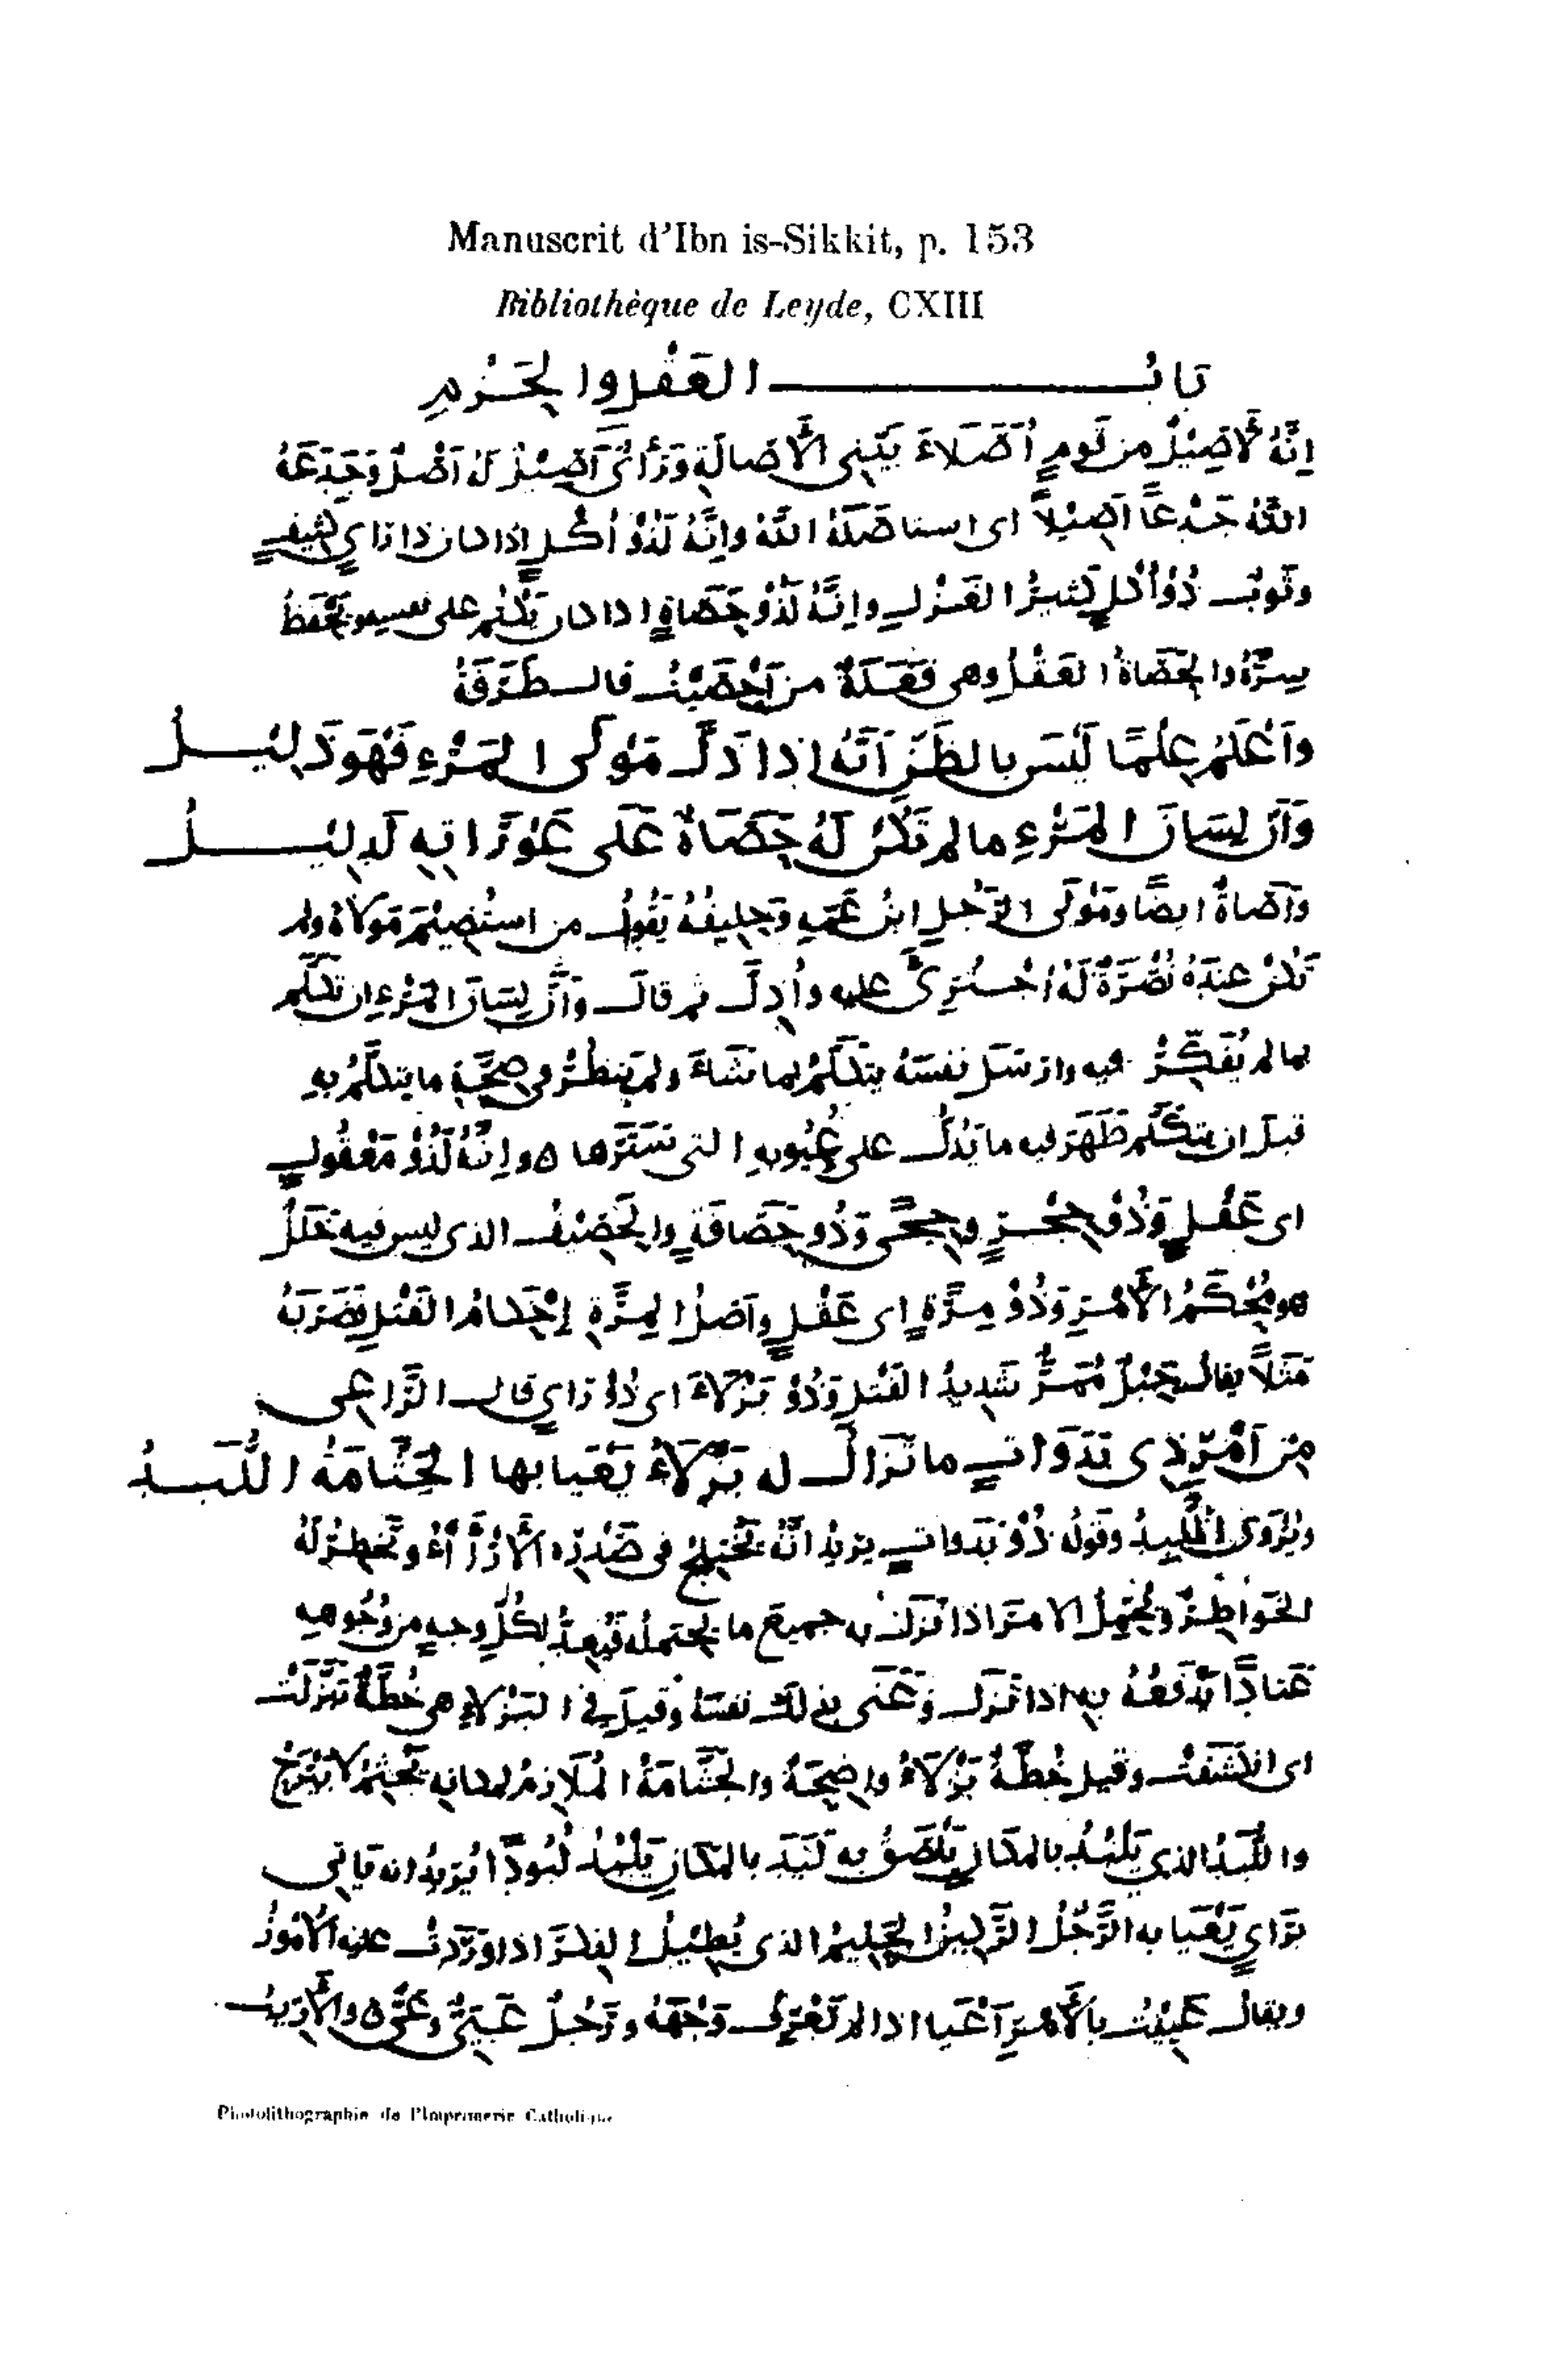 Manuscrit d'Ibn is-Sikkit, p. 153
Bibliothèque de Leyde, CXIII
بَابُ العَقْلِ وَالحَزْمِ
اِنَّهُ لَأَصِيْلٌ مِن قَومٍ أُصَلَاءَ بَيِّنِى الْأَصَالَةِ وَرَأْىٌ أَصِيْلٌ لَهُ اَصْلٌ وَجَدَعَهُ
اللّٰهُ جَدْعًا اَصِيْلًا اى استاصَلَهُ اللّٰهُ وَاِنَّهُ لَذُوْ أُكْلٍ اذا كان ذا رَايٍ كَثِيفٍ
وثَوْبٌ ذُوْ أُكْلٍ كَثِيرُ الغَزْلِ وَاِنَّهُ لَذُوْ حَصَاةٍ اذا كان يَكْتُم على نفسِهِ ويَحْفَظُ
سِرَّهُ والحَصَاةُ العَقْلُ وهى فَعَلَةٌ من أَحْصَيْتُ قال طَرَفَةُ
وَاَعْلَمُ عِلْمًا لَيْسَ بالظَنِّ اَنَّهُ اِذَا ذَلَّ مَوْلَى المَرْءِ فَهْوَ ذَلِيْلُ
وَاَنَّ لِسَانَ المَرْءِ مالم تَكُنْ لَهُ حَصَاةٌ عَلَى عَوْرَاتِهِ لَدَلِيْلُ
وَأَصَاةٌ ايضًا ومَوْلَى الرَّجُلِ ابْنُ عَمِّهِ وحَلِيفُهُ يَقُوْلُ من اسْتُضِيْمَ مَوْلَاهُ ولم
تَكُنْ عِنْدَهُ نُصْرَةٌ لَهُ اُجْتُرِئَ عليه واُذِلَّ ثم قال وَاَنَّ لِسَانَ المَرْءِ ان تكلَّم
بما لم يُفَكِّرْ فيه وارْسَلَ نفسَهُ يتكلَّمُ بما شَاءَ ولم يَنظُرْ فى صِحَّةِ ما يتكلَّمُ بِهِ
قبلَ ان يتكلَّمَ ظَهَرَ فيه ما يَدُلُّ على عُيُوبِهِ التى سَتَرَها ه واِنَّهُ لَذُوْ مَعْقُولٍ
اى عَقْلٍ وَذُوْ حِجْرٍ وحِجًى وَذُو حَصَافَةٍ والحَصِيْفُ الذى ليس فيه خَلَلٌ
هو مُحْكَمُ الْأَمْرِ وَذُوْ مِرَّةٍ اى عَقْلٍ وأَصلُ المِرَّةِ اِحْكَامُ الفَتْلِ فضَرَبَهُ
مَثَلًا يقال حَبْلٌ مُمَرٌّ شَدِيدُ الفَتْلِ وَذُوْ بَزْلَاءَ اى ذُو رَايٍ قال الرَّاعى
مِن اَمْرِ ذى بَدَوَاتٍ ما تَزَالُ له بَزْلَاءُ يَعْيَا بها الجَثَّامَةُ اللُّبَدُ
ويُرْوَى اللَّبِدُ وقَولُه ذُوْ بَدَواتٍ يريدُ انَّهُ تَخْتَلِجُ فى صَدْرِهِ الْأرْاءُ وتَخطِرُ لَهُ
الخَواطِرُ ... الامرَ اذا نَزَل به جميعَ ما يحتمله فيُعِدُّ لكُلِّ وجهٍ من وُجُوهِهِ
عَتَادًا يَدْفَعُهُ به اذا نَزَلَ وَعَنَى بذلك نفسَهُ وقيلَ في البَزْلاءِ هى خُطَّةٌ تَبَزَّلَتْ
اى انكَشَفَتْ وقيل خُطَّةٌ بَزْلَاءُ واضِحَةٌ والجَثَّامَةُ المُلَازِمُ لِمكانِهِ يَجْثِمُ لا يَبْرَحُ
واللُّبَدُ الذي يَلْبُدُ بالمكانِ يَلْصَقُ به لَبَدَ بالمكانِ يَلْبُدُ لُبُودًا يُريدُ انه يَاتى
بَرَايٍ يَعْيَا به الرَّجُلُ الرَّكِينُ الحَلِيمُ الذى يُطِيْلُ الفِكْرَ اذا وَرَدَتْ عليه الامُورُ
ويقال عَيِيْتُ بِالْأَمْرِ اَعْيَا اذا لم تَعْرِفْ وَجْهَهُ ورَجُلٌ عَيِيٌّ وعَىٌّ ه والْأَرِيبُ
Photolithographie de l'Imprimerie Catholique